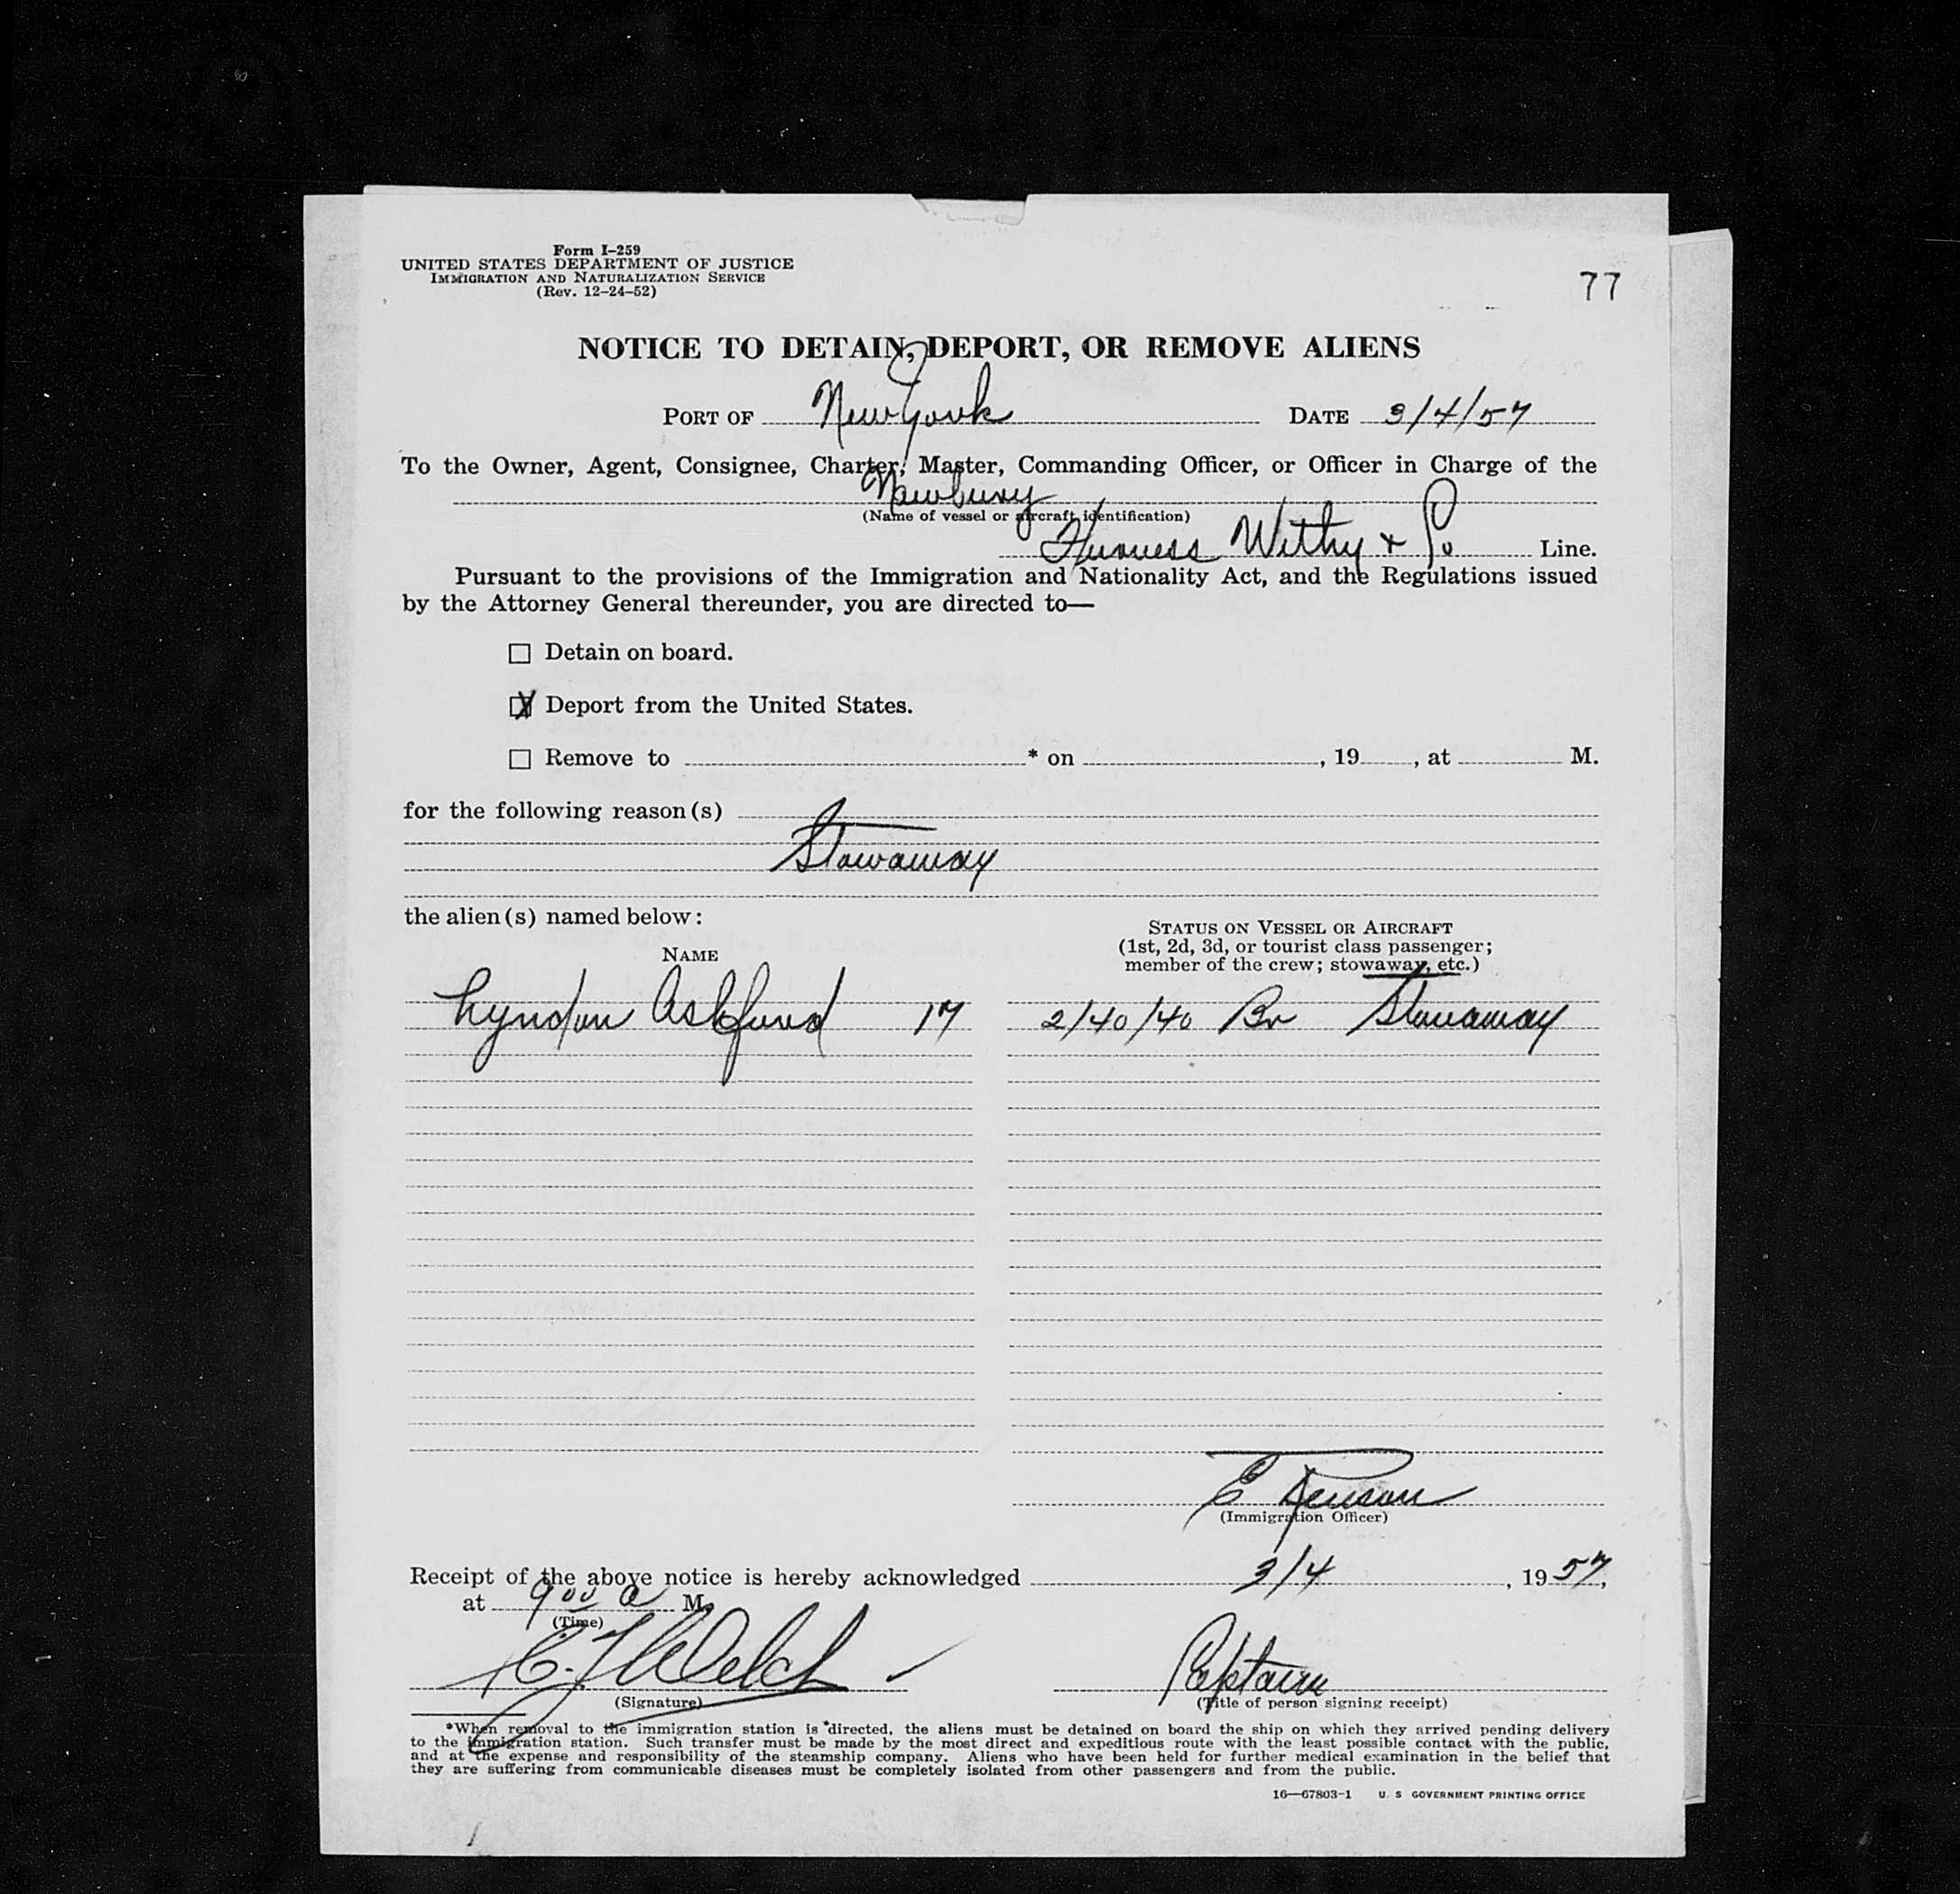 Form I-259
UNITED STATES DEPARTMENT OF JUSTICE
IMMIGRATION AND NATURALIZATION SERVICE
(Rev. 12-24-52)
77
NOTICE TO DETAIN, DEPORT, OR REMOVE ALIENS
PORT OF New York DATE 3/4/57
To the Owner, Agent, Consignee, Charter, Master, Commanding Officer, or Officer in Charge of the
Newbury
(Name of vessel or aircraft identification)
Furness Withy + Co Line.
Pursuant to the provisions of the Immigration and Nationality Act, and the Regulations issued
by the Attorney General thereunder, you are directed to—
☐ Detain on board.
☒ Deport from the United States.
☐ Remove to * on , 19 , at M.
for the following reason(s)
Stowaway
the alien(s) named below:
NAME
STATUS ON VESSEL OR AIRCRAFT
(1st, 2d, 3d, or tourist class passenger;
member of the crew; stowaway, etc.)
Lyndon Ashford 17 2/40/40 Br Stowaway
E
(Immigration Officer)
Receipt of the above notice is hereby acknowledged 3/4, 1957,
at 9 00 a M.
(Time)
Welch Captain
(Signature) (Title of person signing receipt)
*When removal to the immigration station is directed, the aliens must be detained on board the ship on which they arrived pending delivery
to the immigration station. Such transfer must be made by the most direct and expeditious route with the least possible contact with the public,
and at the expense and responsibility of the steamship company. Aliens who have been held for further medical examination in the belief that
they are suffering from communicable diseases must be completely isolated from other passengers and from the public.
16—67803-1 U. S. GOVERNMENT PRINTING OFFICE